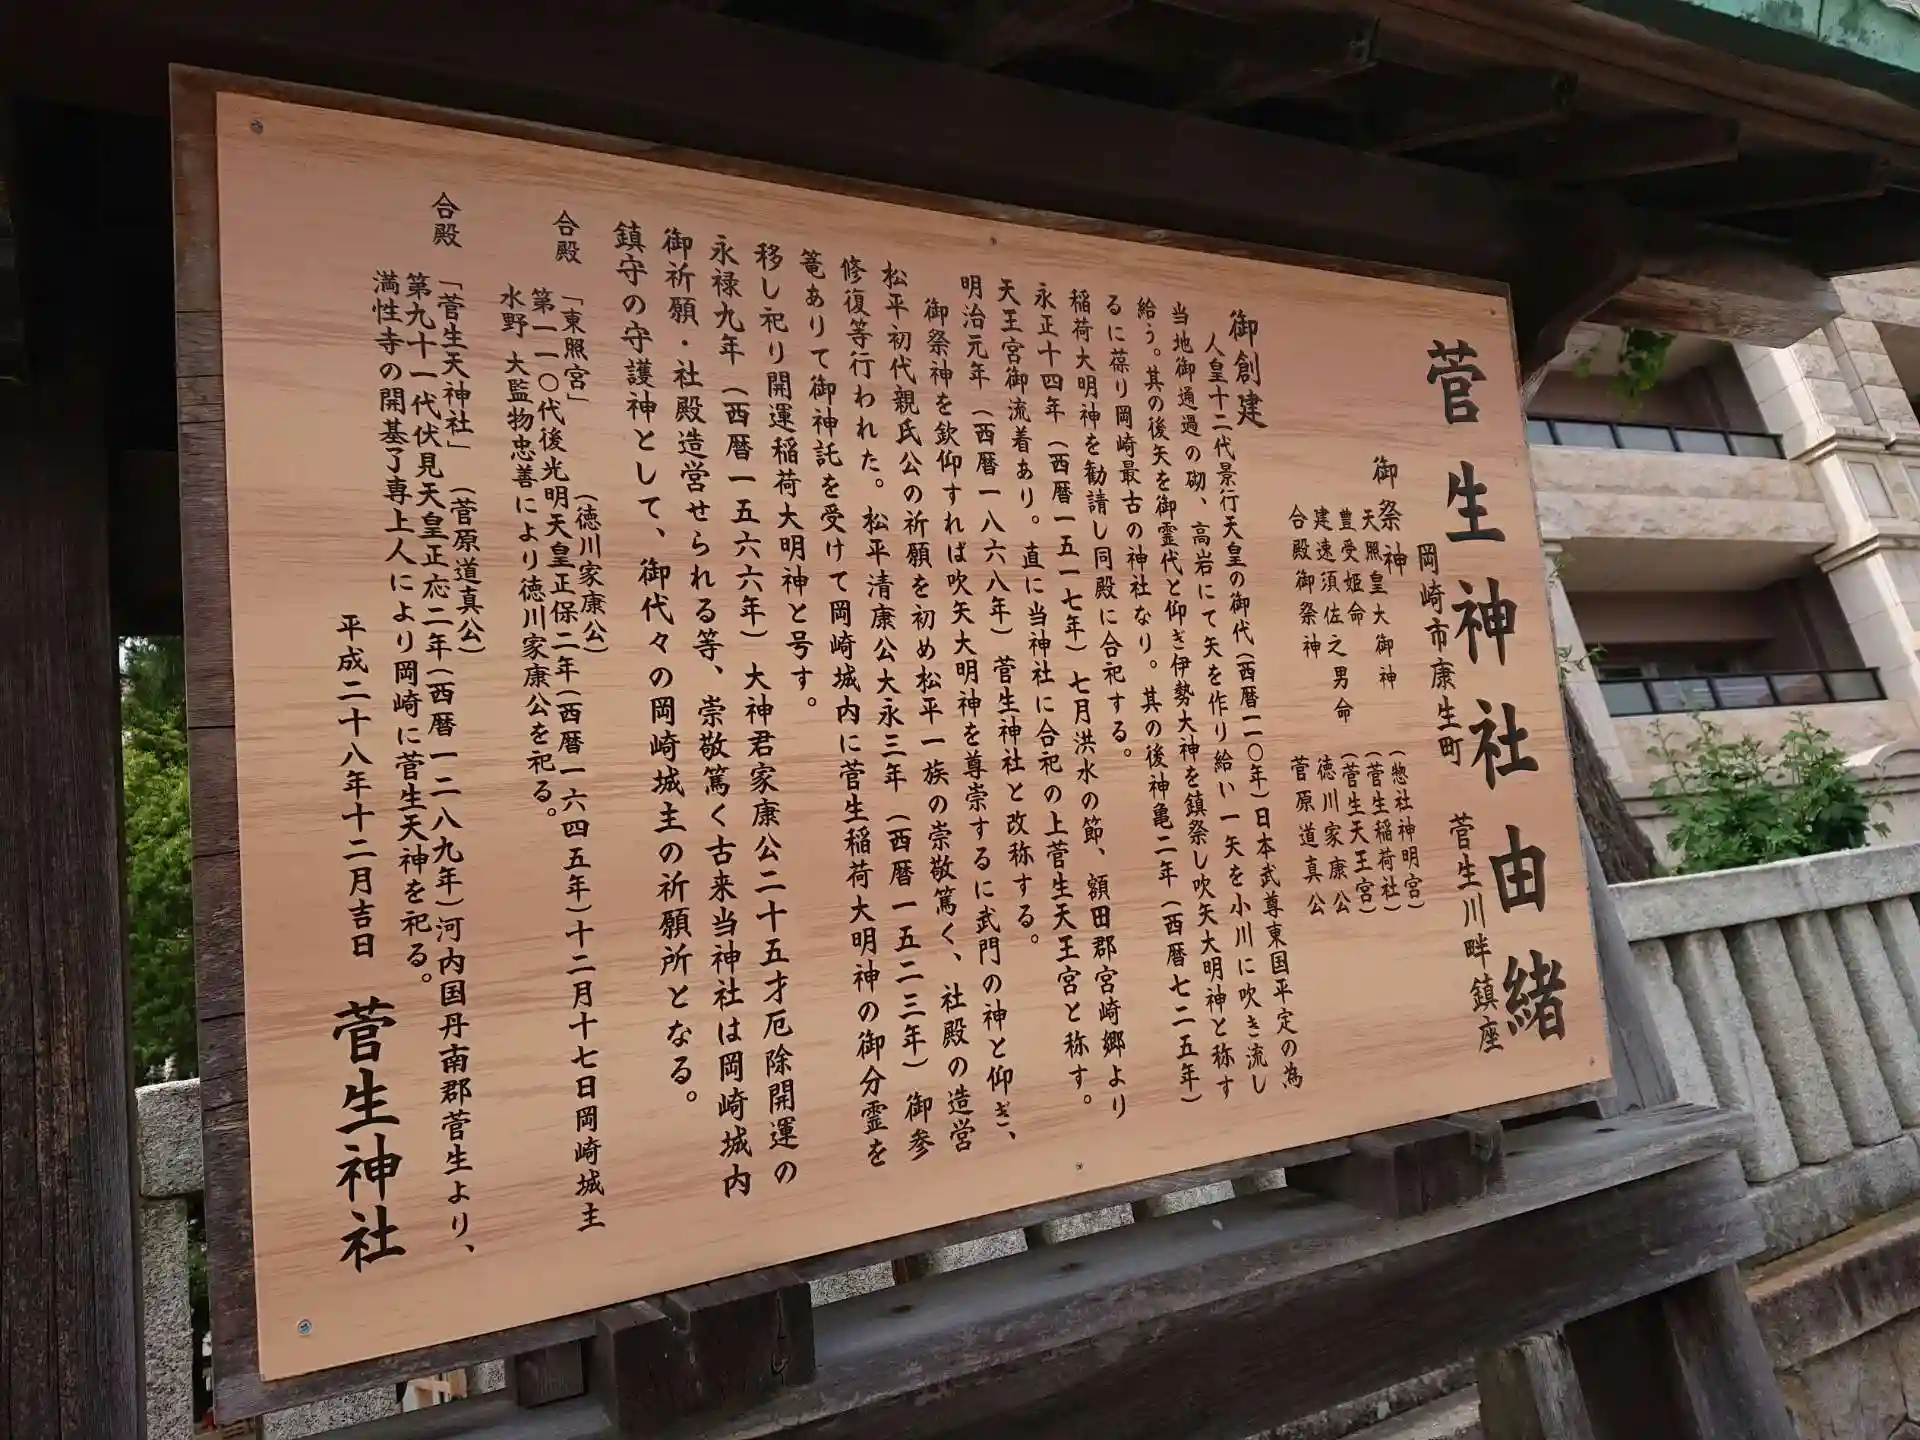 菅生神社由緒
岡崎市康生町　菅生川畔鎮座
御祭神
天照皇大御神　(惣社神明宮)
豊受姫命　(菅生稲荷社)
建速須佐之男命　(菅生天王宮)
合殿御祭神　徳川家康公
菅原道真公
御創建
人皇十二代景行天皇の御代(西暦一一〇年)日本武尊東国平定の為
当地御通過の砌、高岩にて矢を作り給い一矢を小川に吹き流し
給う。其の後矢を御霊代と仰ぎ伊勢大神を鎮祭し吹矢大明神と称す
るに葆り岡崎最古の神社なり。其の後神亀二年(西暦七二五年)
稲荷大明神を勧請し同殿に合祀する。
永正十四年(西暦一五一七年)七月洪水の節、額田郡宮崎郷より
天王宮御流着あり。直に当神社に合祀の上菅生天王宮と称す。
明治元年(西暦一八六八年)菅生神社と改称する。
御祭神を欽仰すれば吹矢大明神を尊崇するに武門の神と仰ぎ、
松平初代親氏公の祈願を初め松平一族の崇敬篤く、社殿の造営
修復等行われた。松平清康公大永三年(西暦一五二三年)御参
篭ありて御神託を受けて岡崎城内に菅生稲荷大明神の御分霊を
移し祀り開運稲荷大明神と号す。
永禄九年(西暦一五六六年)大神君家康公二十五才厄除開運の
御祈願・社殿造営せられる等、崇敬篤く古来当神社は岡崎城内
鎮守の守護神として、御代々の岡崎城主の祈願所となる。
合殿　「東照宮」　(徳川家康公)
第一一〇代後光明天皇正保二年(西暦一六四五年)十二月十七日岡崎城主
水野 大監物忠善により徳川家康公を祀る。
合殿　「菅生天神社」　(菅原道真公)
第九十一代伏見天皇正応二年(西暦一二八九年)河内国丹南郡菅生より、
満性寺の開基了専上人により岡崎に菅生天神を祀る。
平成二十八年十二月吉日　菅生神社